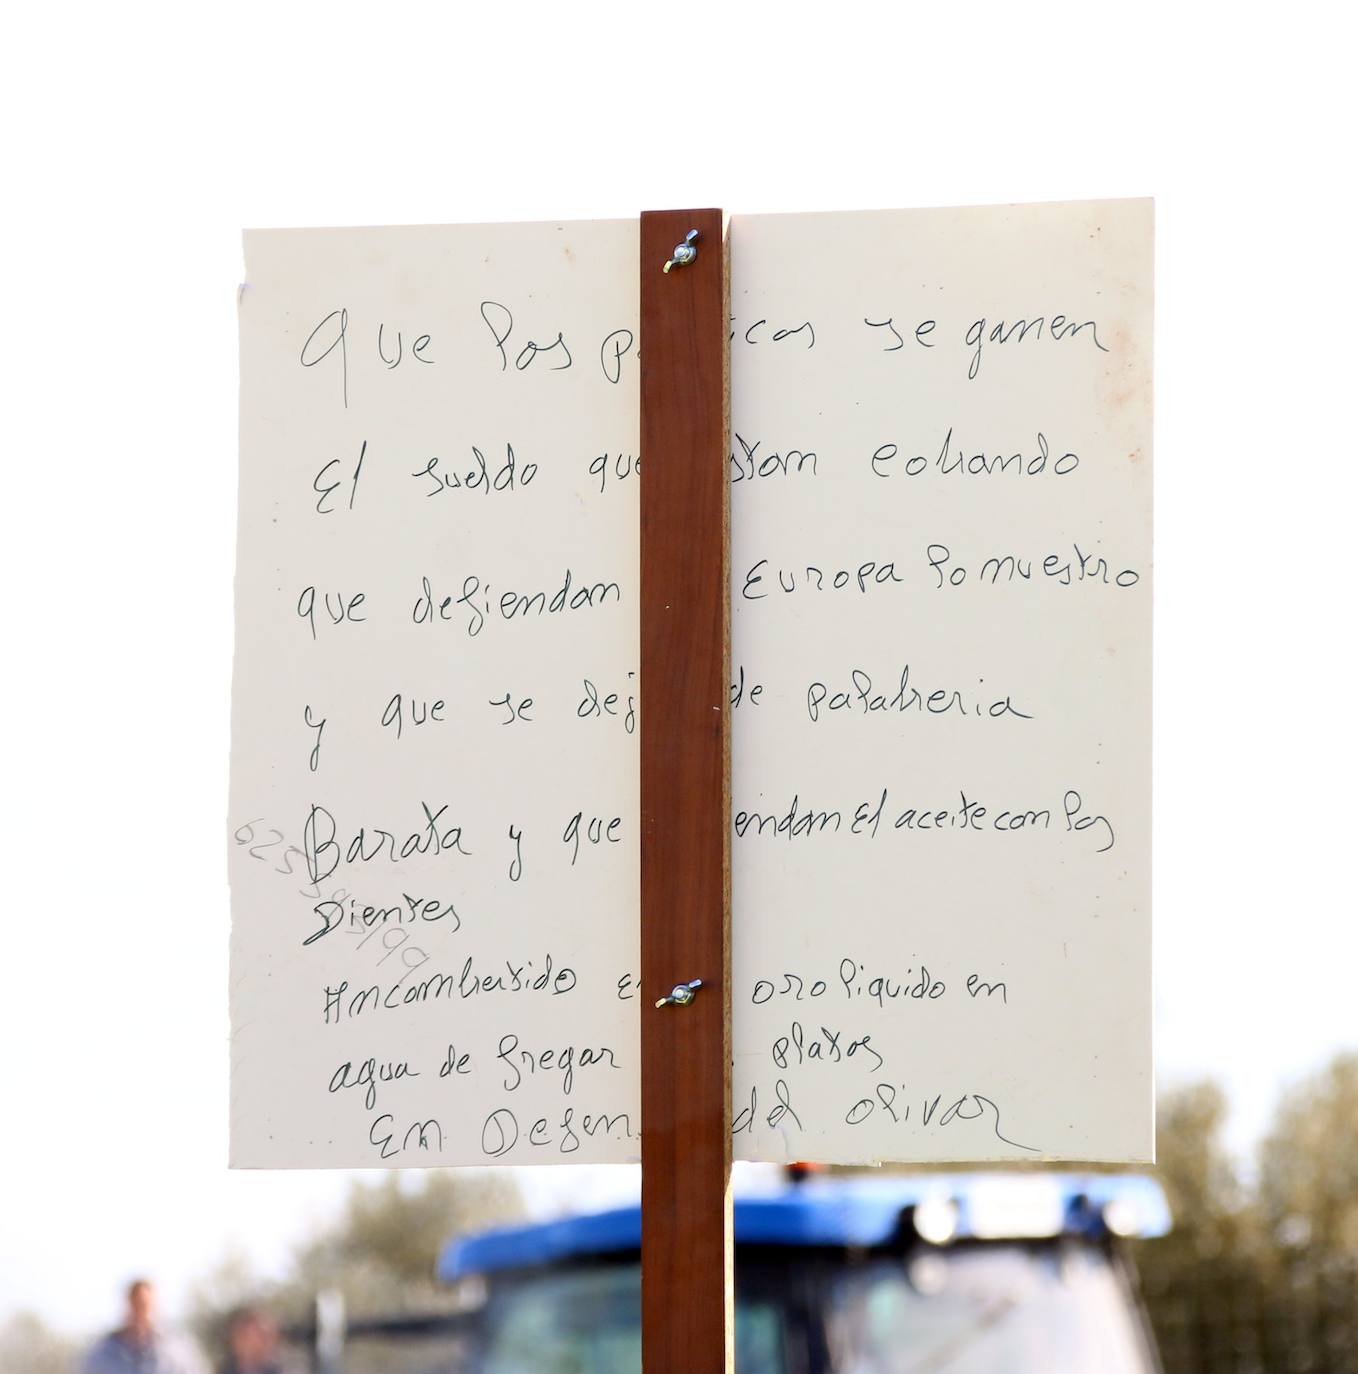 Que los p icos se ganen
El sueldo que stan cobrando
que defiendan Europa lo nuestro
y que se dej de palabreria
Barata y que endan El aceite con los
Dientes
oro liquido en
agua de fregar platos
En Defen del olivar